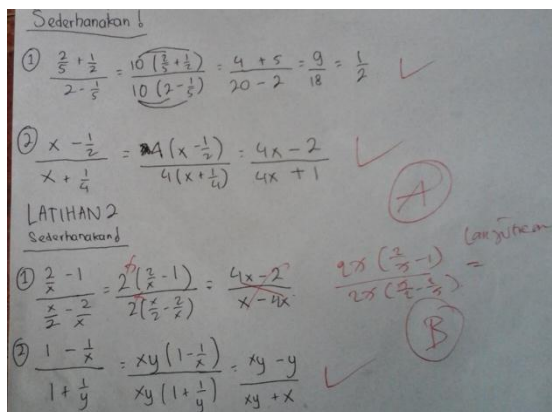 Sederhanakan!
① (2/5 + 1/2)/(2 - 1/5) = 10(2/5 + 1/2)/10(2 - 1/5) = (4 + 5)/(20 - 2) = 9/18 = 1/2 ✓
② (x - 1/2)/(x + 1/4) = 4(x - 1/2)/4(x + 1/4) = (4x - 2)/(4x + 1) ✓
A
LATIHAN 2
Sederhanakan!
① (2/x - 1)/(x/2 - 2/x) = 2(2/x - 1)/2(x/2 - 2/x) = (4x - 2)/(x - 4x) 2x(2/x - 1)/2x(x/2 - 2/x) = Lanjutkan
B
② (1 - 1/x)/(1 + 1/y) = xy(1 - 1/x)/xy(1 + 1/y) = (xy - y)/(xy + x) ✓